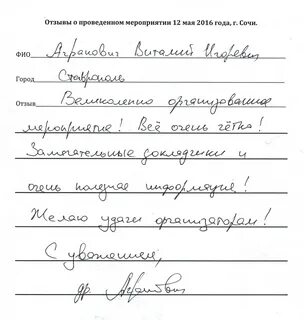 Отзывы о проведенном мероприятии 12 мая 2016 года, г. Сочи.
ФИО Агранович Виталий Игоревич
Город Ставрополь
Отзыв Великолепно организованное
мероприятие! Всё очень чётко!
Замечательные докладчики и
очень полезная информация!
Желаю удачи организаторам!
С уважением,
др. Агранович